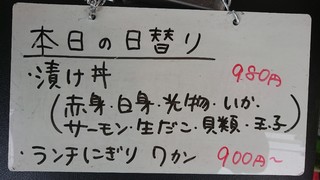 本日の日替り
・漬け丼 980円
(赤身・白身・光物・いか・
サーモン・生だこ・貝類・玉子)
・ランチにぎり 7カン 900円~